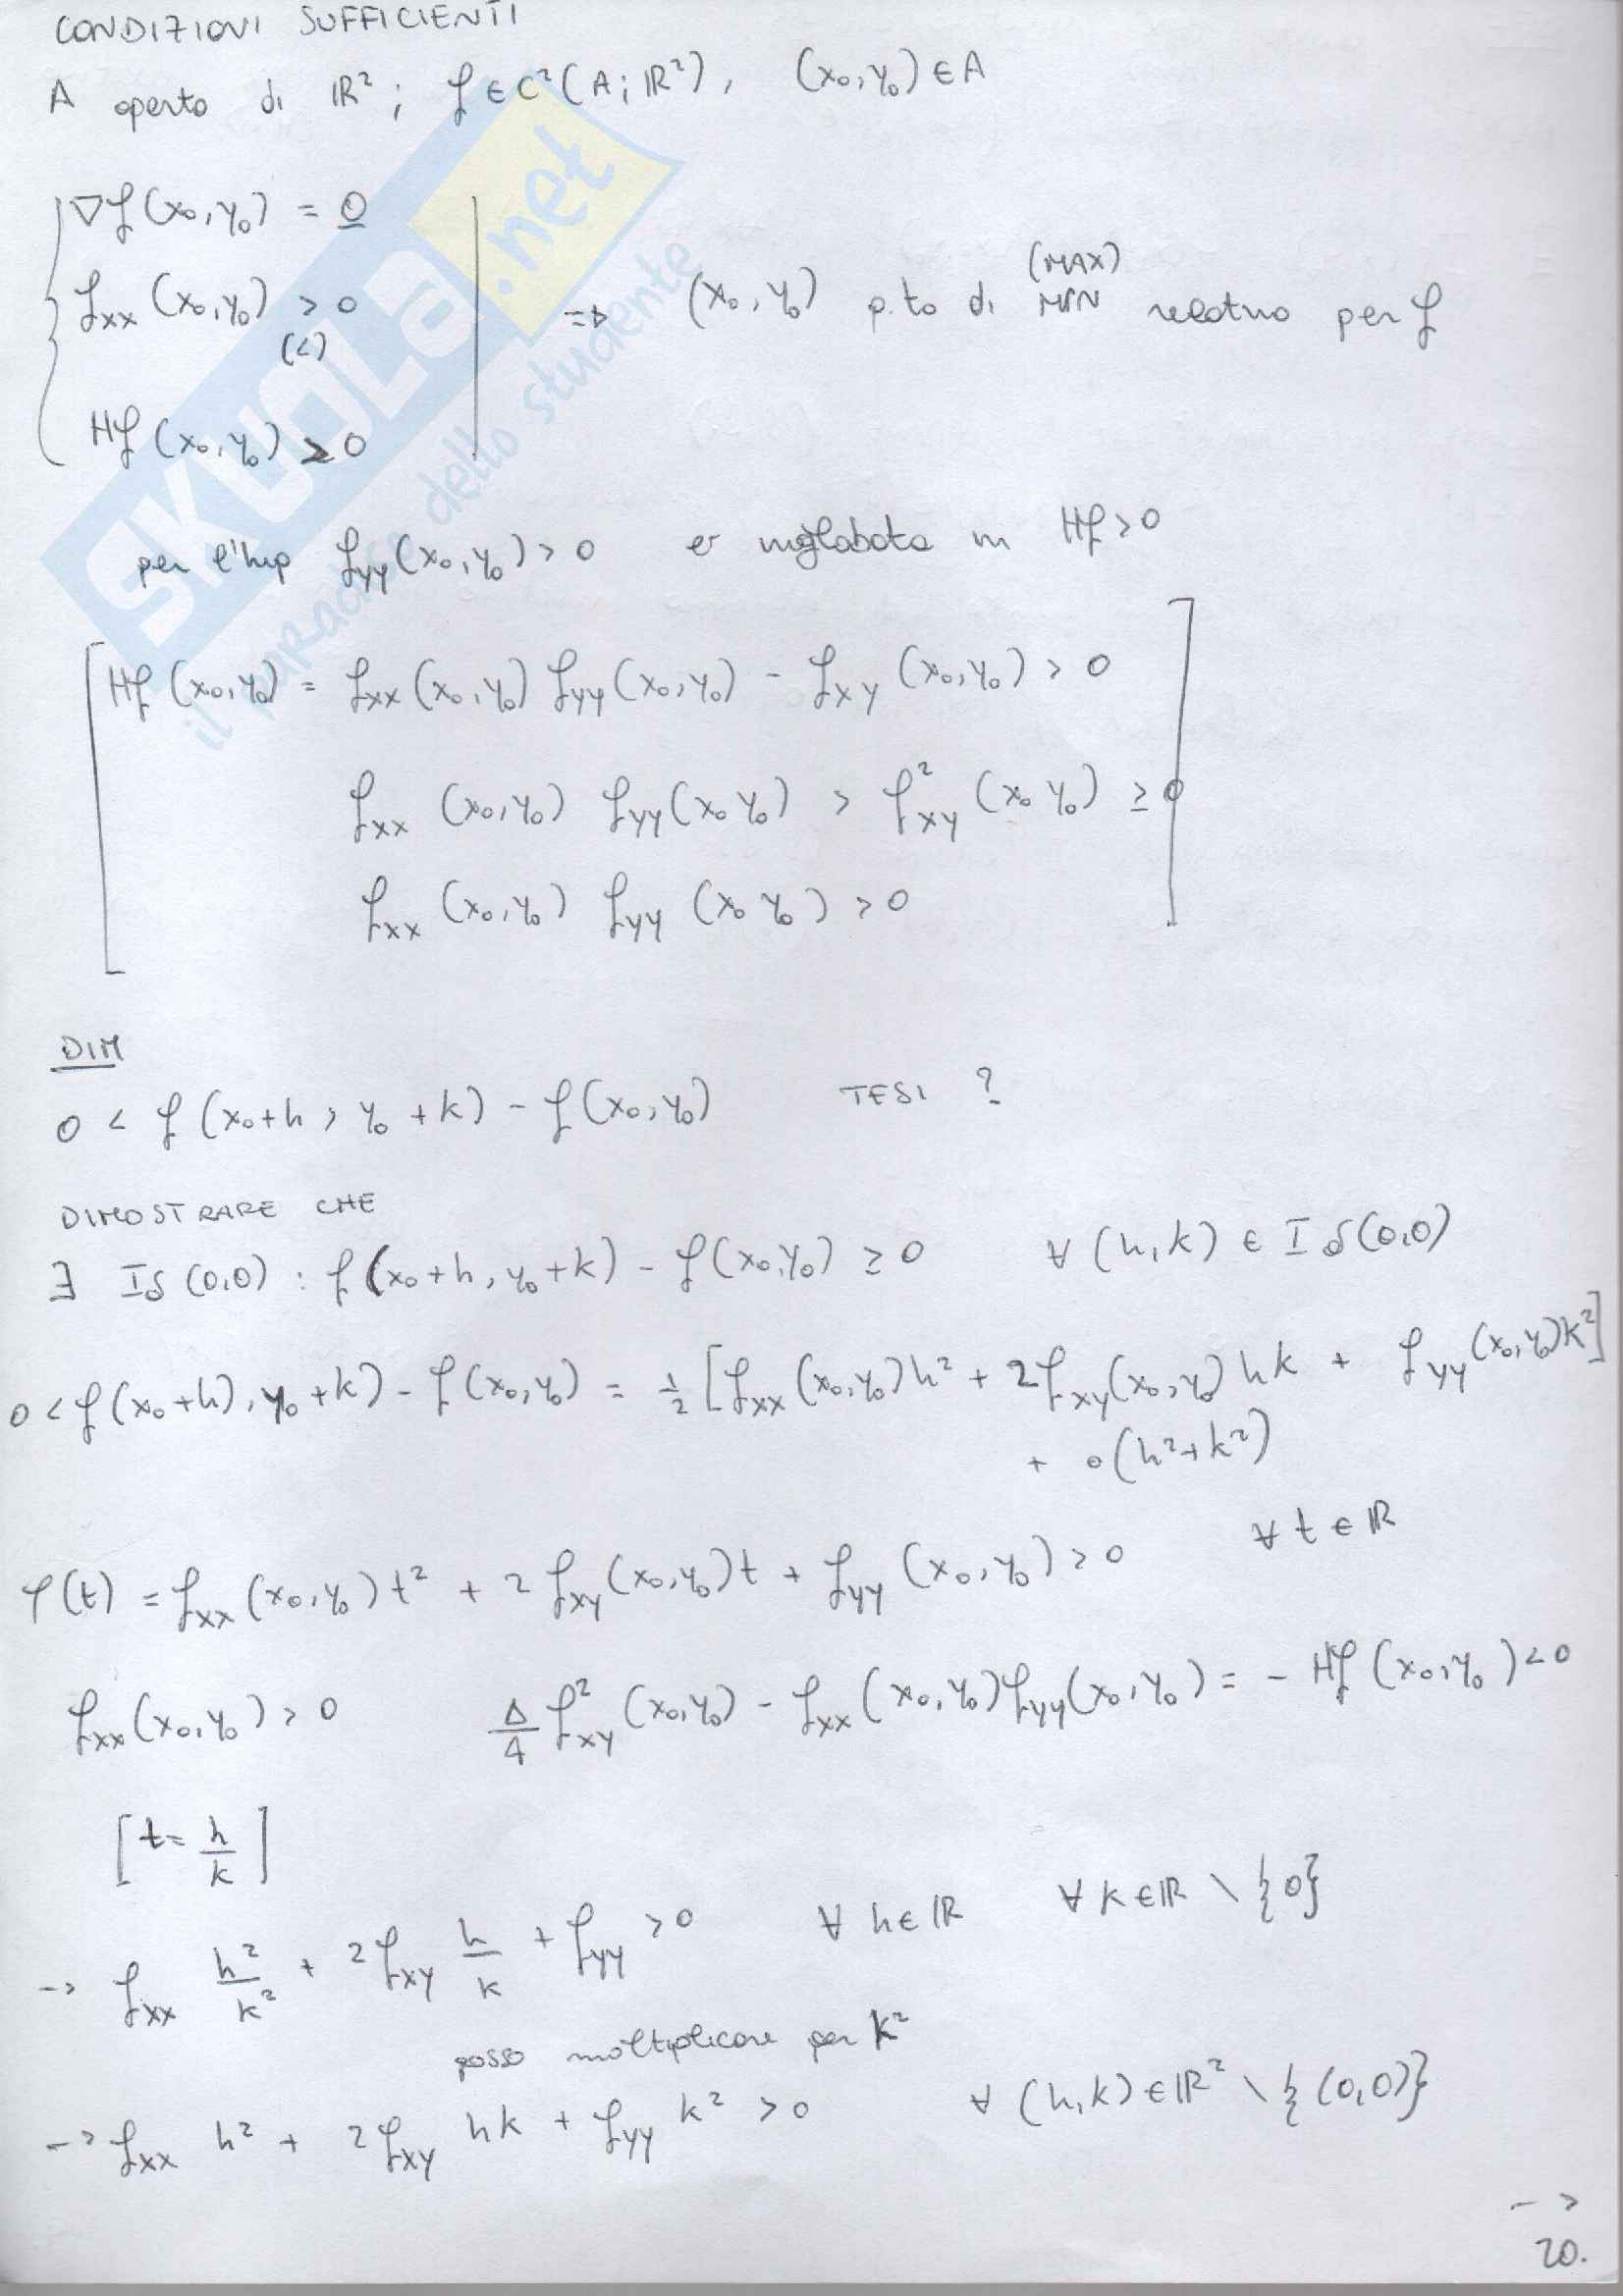 CONDIZIONI SUFFICIENTI
A aperto di ℝ²; f ∈ C²(A; ℝ²), (x₀,y₀) ∈ A
∇f(x₀,y₀) = 0
fxx(x₀,y₀) > 0
(<)
⇒ (x₀,y₀) p.to di MIN relativo per f
(MAX)
Hf(x₀,y₀) > 0
per l'hip fyy(x₀,y₀) > 0 è inglobata in Hf > 0
Hf(x₀,y₀) = fxx(x₀,y₀) fyy(x₀,y₀) - fxy(x₀,y₀) > 0
fxx(x₀,y₀) fyy(x₀ y₀) > f²xy(x₀ y₀) ≥ 0
fxx(x₀,y₀) fyy(x₀ y₀) > 0
DIM
0 < f(x₀+h, y₀+k) - f(x₀,y₀) TESI ?
DIMOSTRARE CHE
∃ Iδ(0,0) : f(x₀+h, y₀+k) - f(x₀,y₀) ≥ 0 ∀ (h,k) ∈ Iδ(0,0)
0 < f(x₀+h), y₀+k) - f(x₀,y₀) = 1/2 [fxx(x₀,y₀)h² + 2fxy(x₀,y₀)hk + fyy(x₀,y₀)k²]
+ o(h²+k²)
φ(t) = fxx(x₀,y₀)t² + 2fxy(x₀,y₀)t + fyy(x₀,y₀) > 0 ∀ t ∈ ℝ
fxx(x₀,y₀) > 0 Δ/4 f²xy(x₀,y₀) - fxx(x₀,y₀)fyy(x₀,y₀) = - Hf(x₀,y₀) < 0
[t = h/k]
-> fxx h²/k² + 2fxy h/k + fyy > 0 ∀ h ∈ ℝ ∀ k ∈ ℝ \ {0}
posso moltiplicare per k²
-> fxx h² + 2fxy hk + fyy k² > 0 ∀ (h,k) ∈ ℝ² \ {(0,0)}
->
20.
SKUOLA.net
il paradiso dello studente